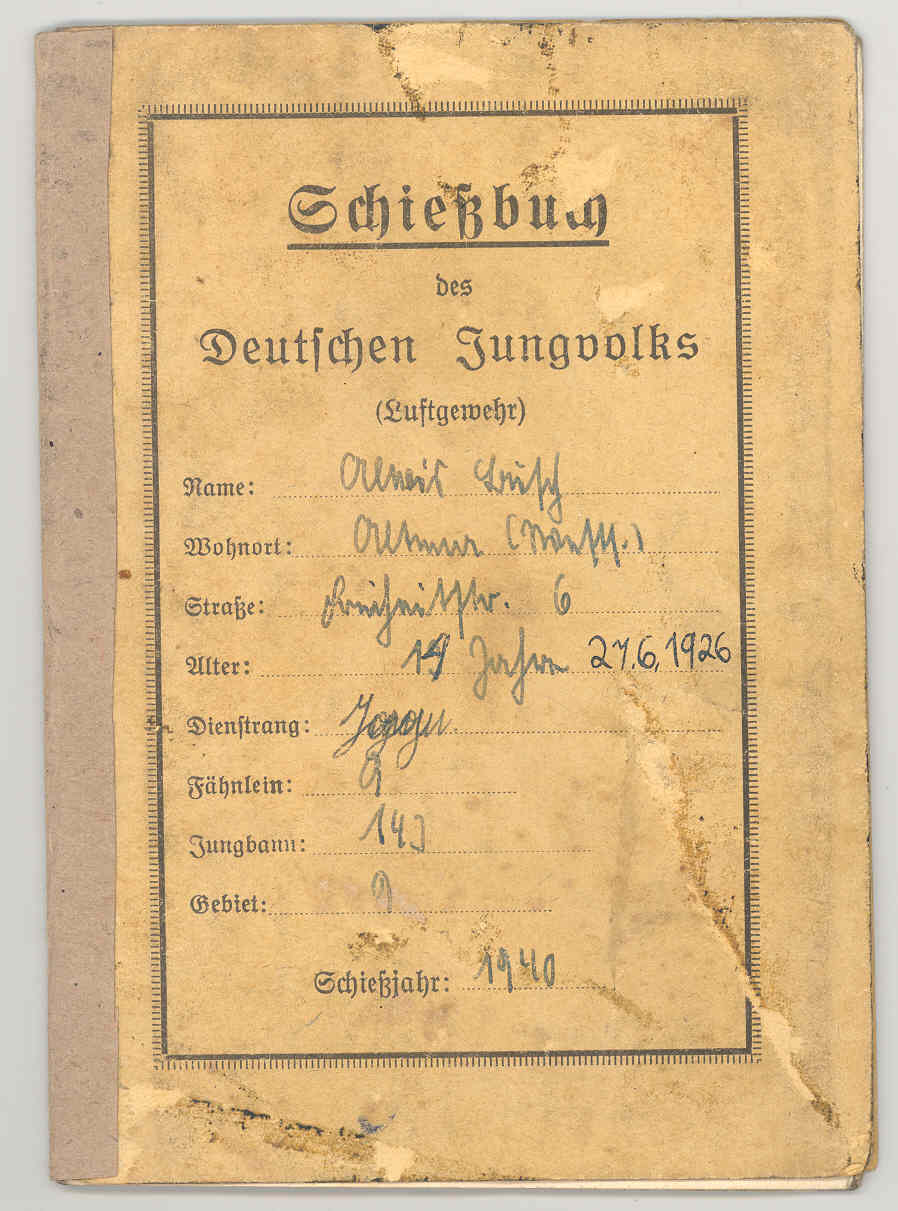 Schießbuch
des
Deutschen Jungvolks
(Luftgewehr)
Name: Alois Busch
Wohnort: Altena (Westf.)
Straße: Freiheitstr. 6
Alter: 14 Jahre 27.6.1926
Dienstrang:
Fähnlein: 9
Jungbann: 143
Gebiet: 9
Schießjahr: 1940